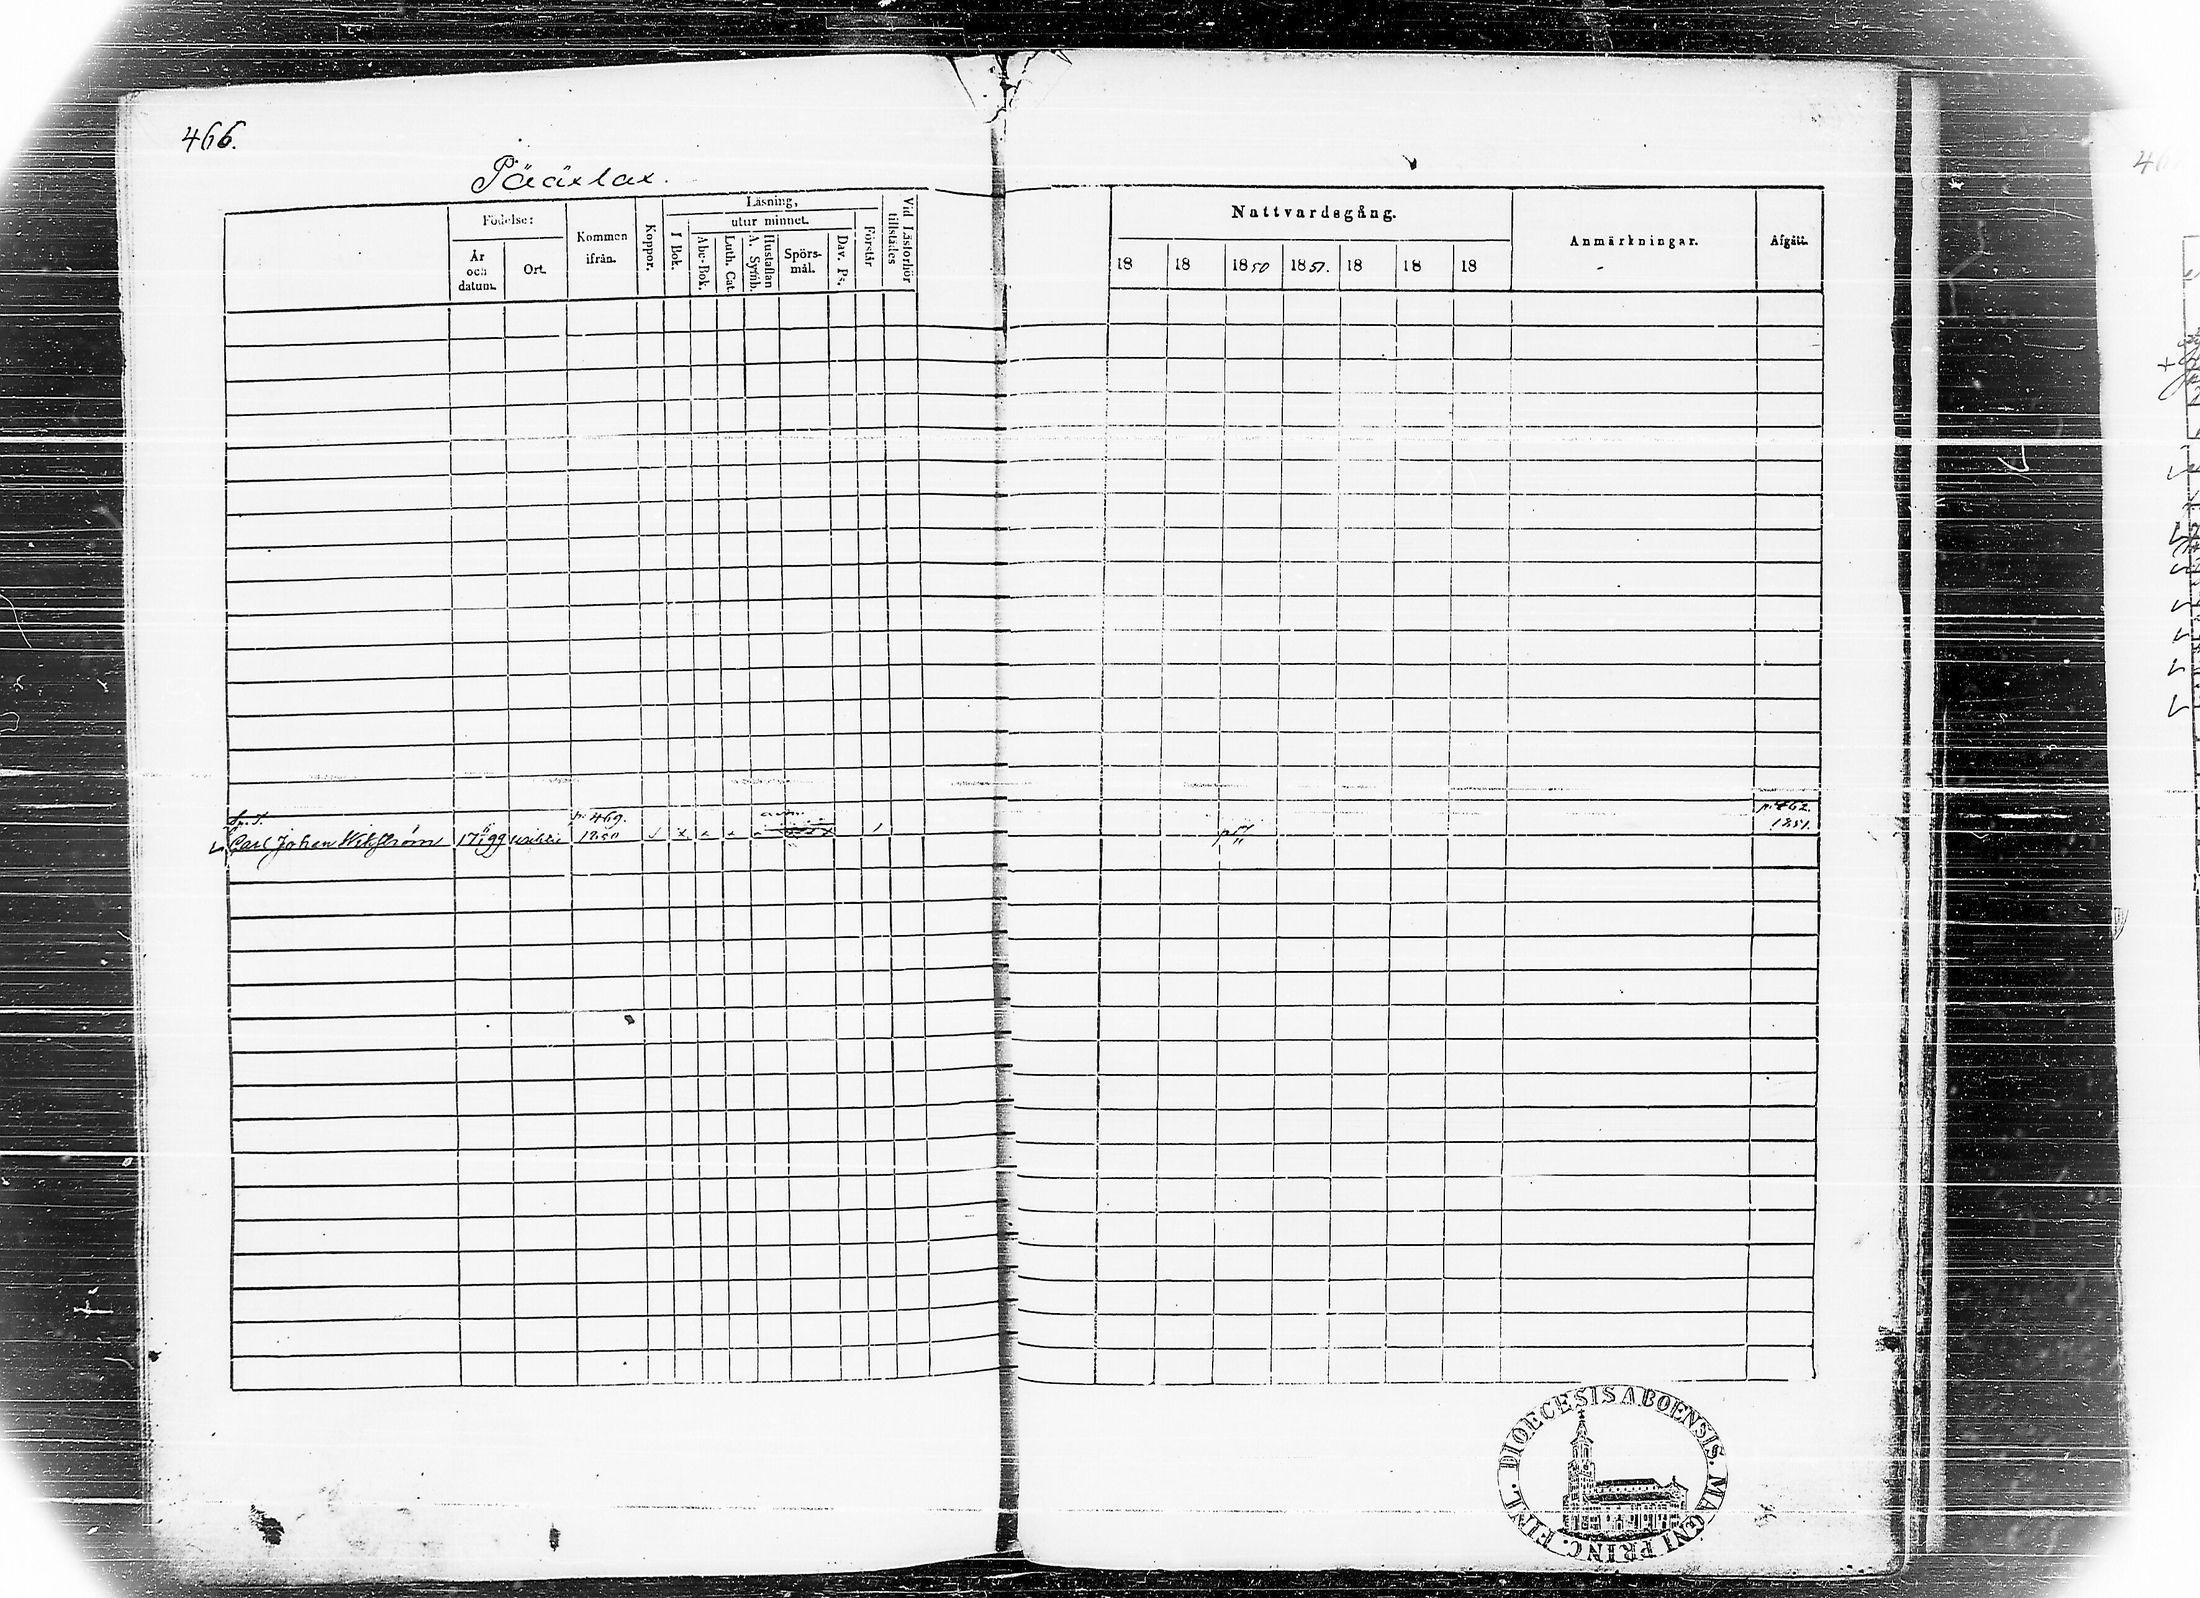 466.
Läsning,
Födelse:
utur minnet.
Kommen
ifrån.
Koppor.
I Bok.
Abc-Bok.
Luth. Cat.
Hustaflan
A. Symb.
Spörs-
mål.
Dav. Ps.
Förstår
Vid Läsförhör
tillstädes
År
och
datum.
Ort.
Nattvardsgång.
Anmärkningar.
Afgått.
18 18 1850 1851. 18 18 18
p. 469. p. 462.
Carl Johan Wikström 1850 1851.
FINL. DIOECESIS ABOENSIS. MAGNI PRINC.